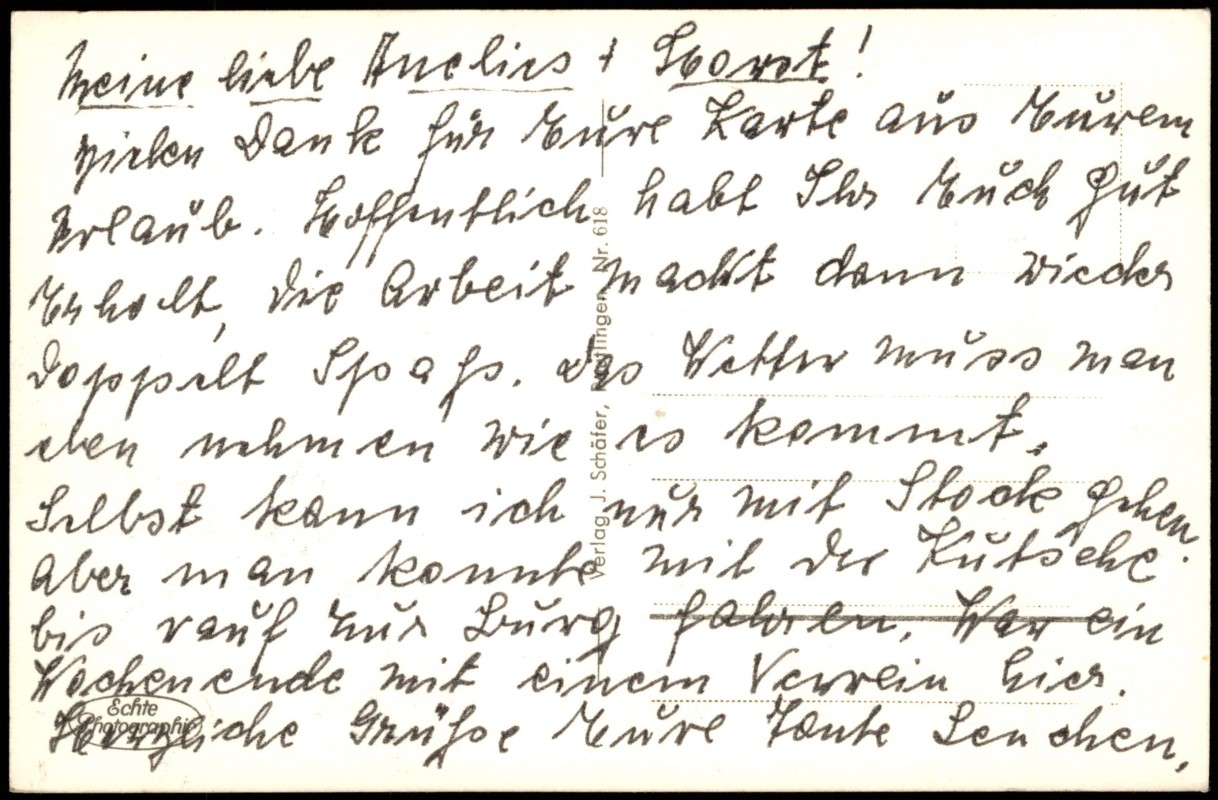 Meine liebe Anelies + Horst!
vielen Dank für Eure Karte aus Eurem
Urlaub. Hoffentlich habt Ihr Euch gut
Erholt, die Arbeit macht dann wieder
doppelt Spaß. das Wetter muss man
eben nehmen wie es kommt.
Selbst kann ich nur mit Stock gehen.
Aber man konnte mit der Kutsche
bis rauf zur Burg fahren. War ein
Wochenende mit einem Verrein hier.
Herzliche Grüße Eure Tante Lenchen,
Echte
Photographie
Verlag J. Schäfer, Nr. 618